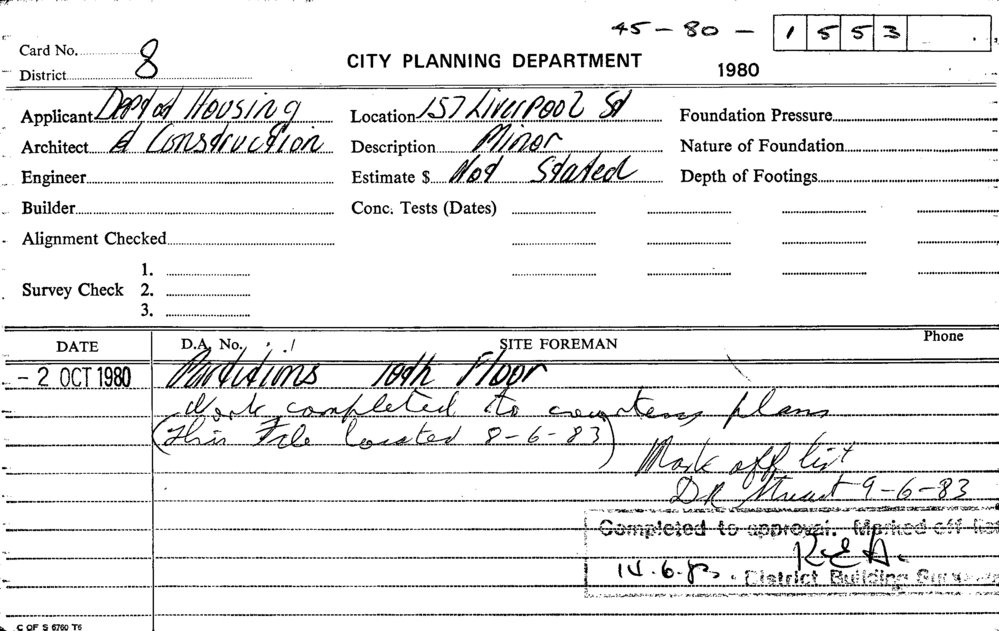 45-80-1553
Card No.
8
District
CITY PLANNING DEPARTMENT
1980
Applicant Dept of Housing
Location 157 Liverpool St
Foundation Pressure
Architect & Construction
Description Minor
Nature of Foundation
Engineer
Estimate $ Not Stated
Depth of Footings
Builder
Conc. Tests (Dates)
Alignment Checked
1.
Survey Check 2.
3.
DATE D.A. No. SITE FOREMAN Phone
- 2 OCT 1980 Partitions 10th Floor
Work completed to courtesy plans
(This File located 8-6-83)
Mark off list
DR Stuart 9-6-83
Completed to approval. Marked off list
14.6.83. District Building
C OF S 6760 T6